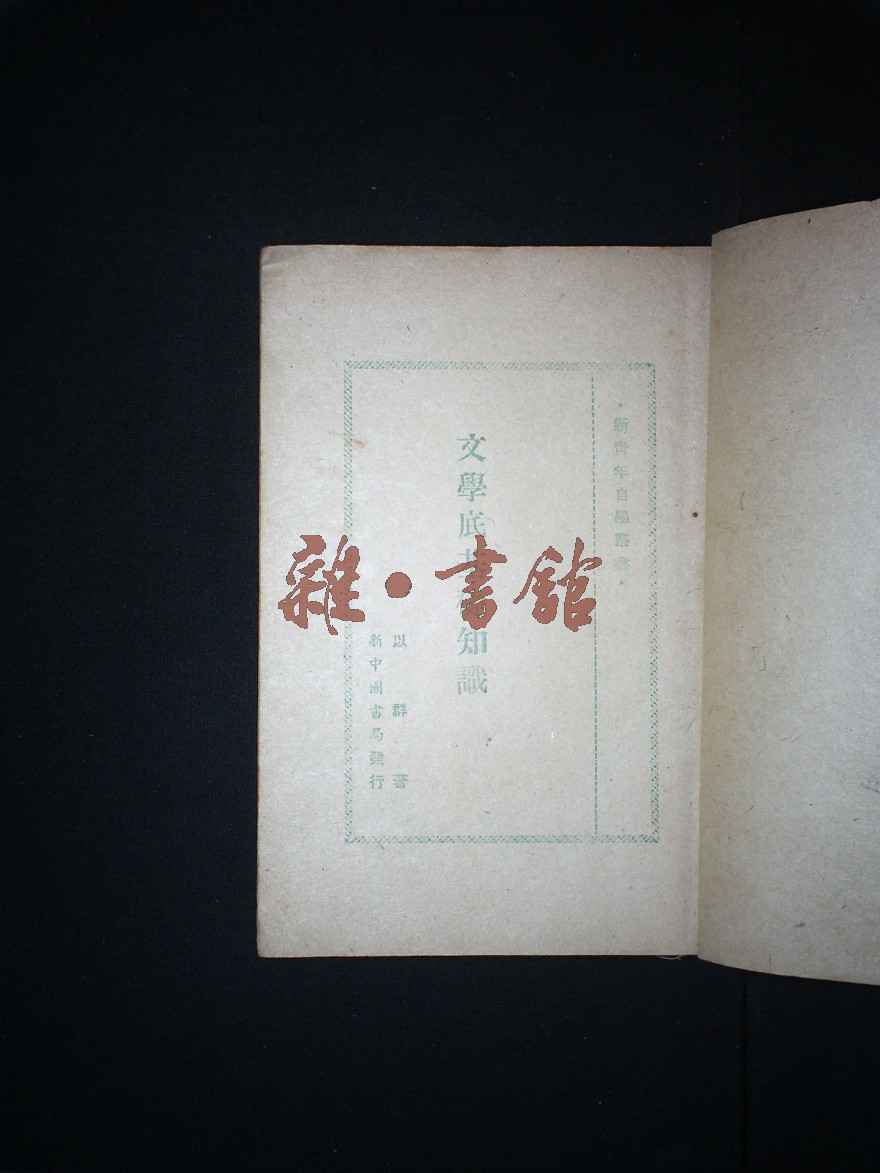 ·新青年自學叢書·
文學底基礎知識
以群著
新中國書局發行
雜·書館